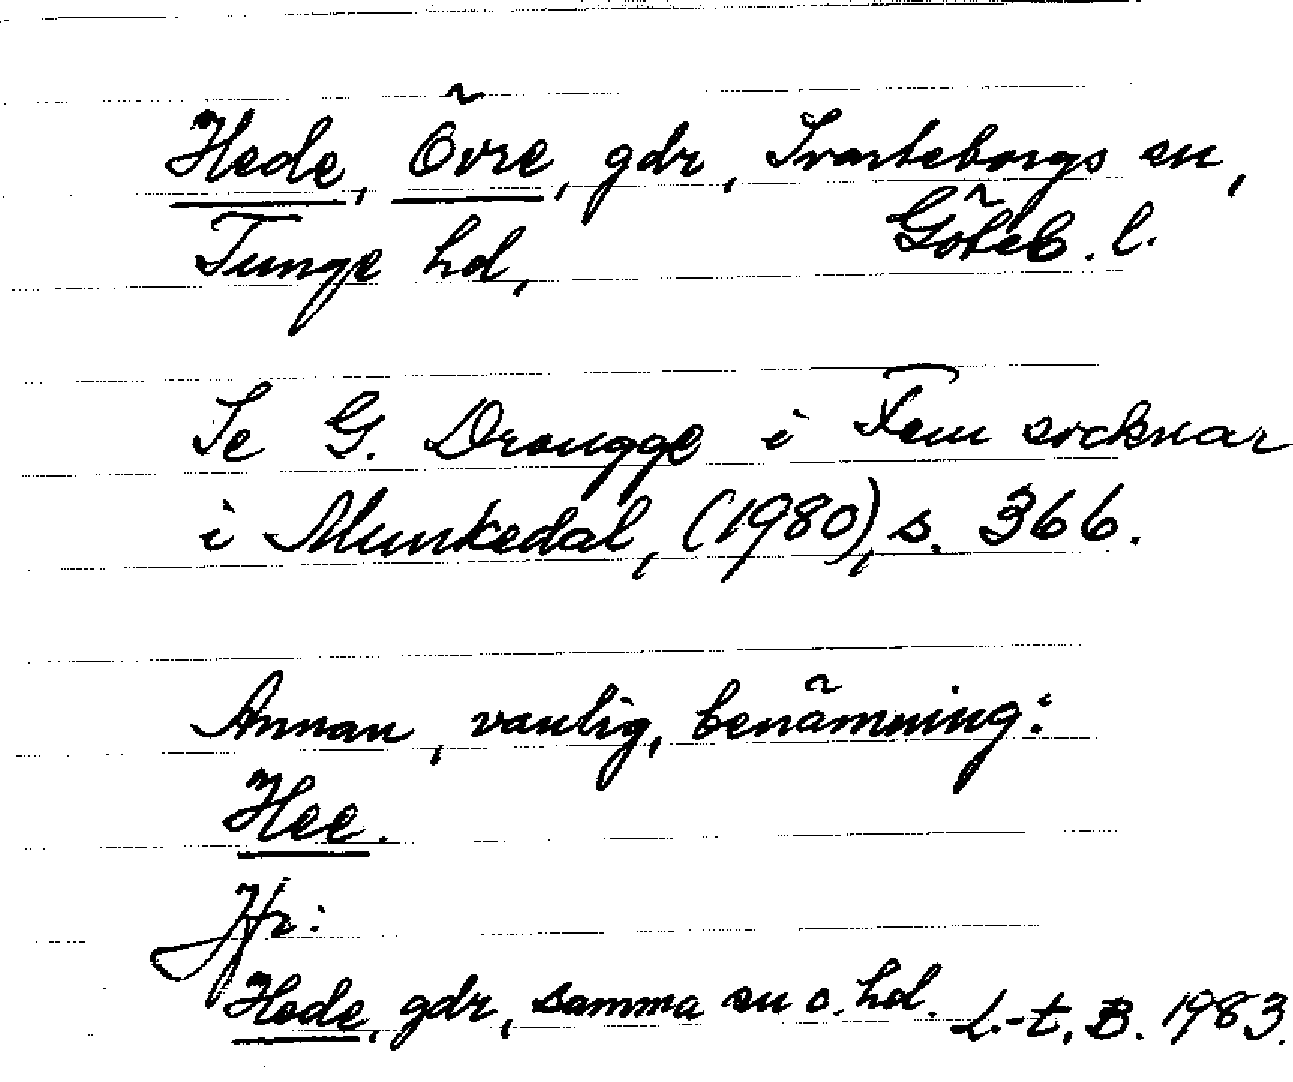 Hede, Övre, gdr, Svarteborgs sn,
Tunge hd, Göteb. l.
Se G. Drougge i Fem socknar
i Munkedal, (1980), s. 366.
Annan, vanlig, benämning:
Hee.
Jfr:
Hede, gdr, samma sn o. hd. L.-t. B. 1983.